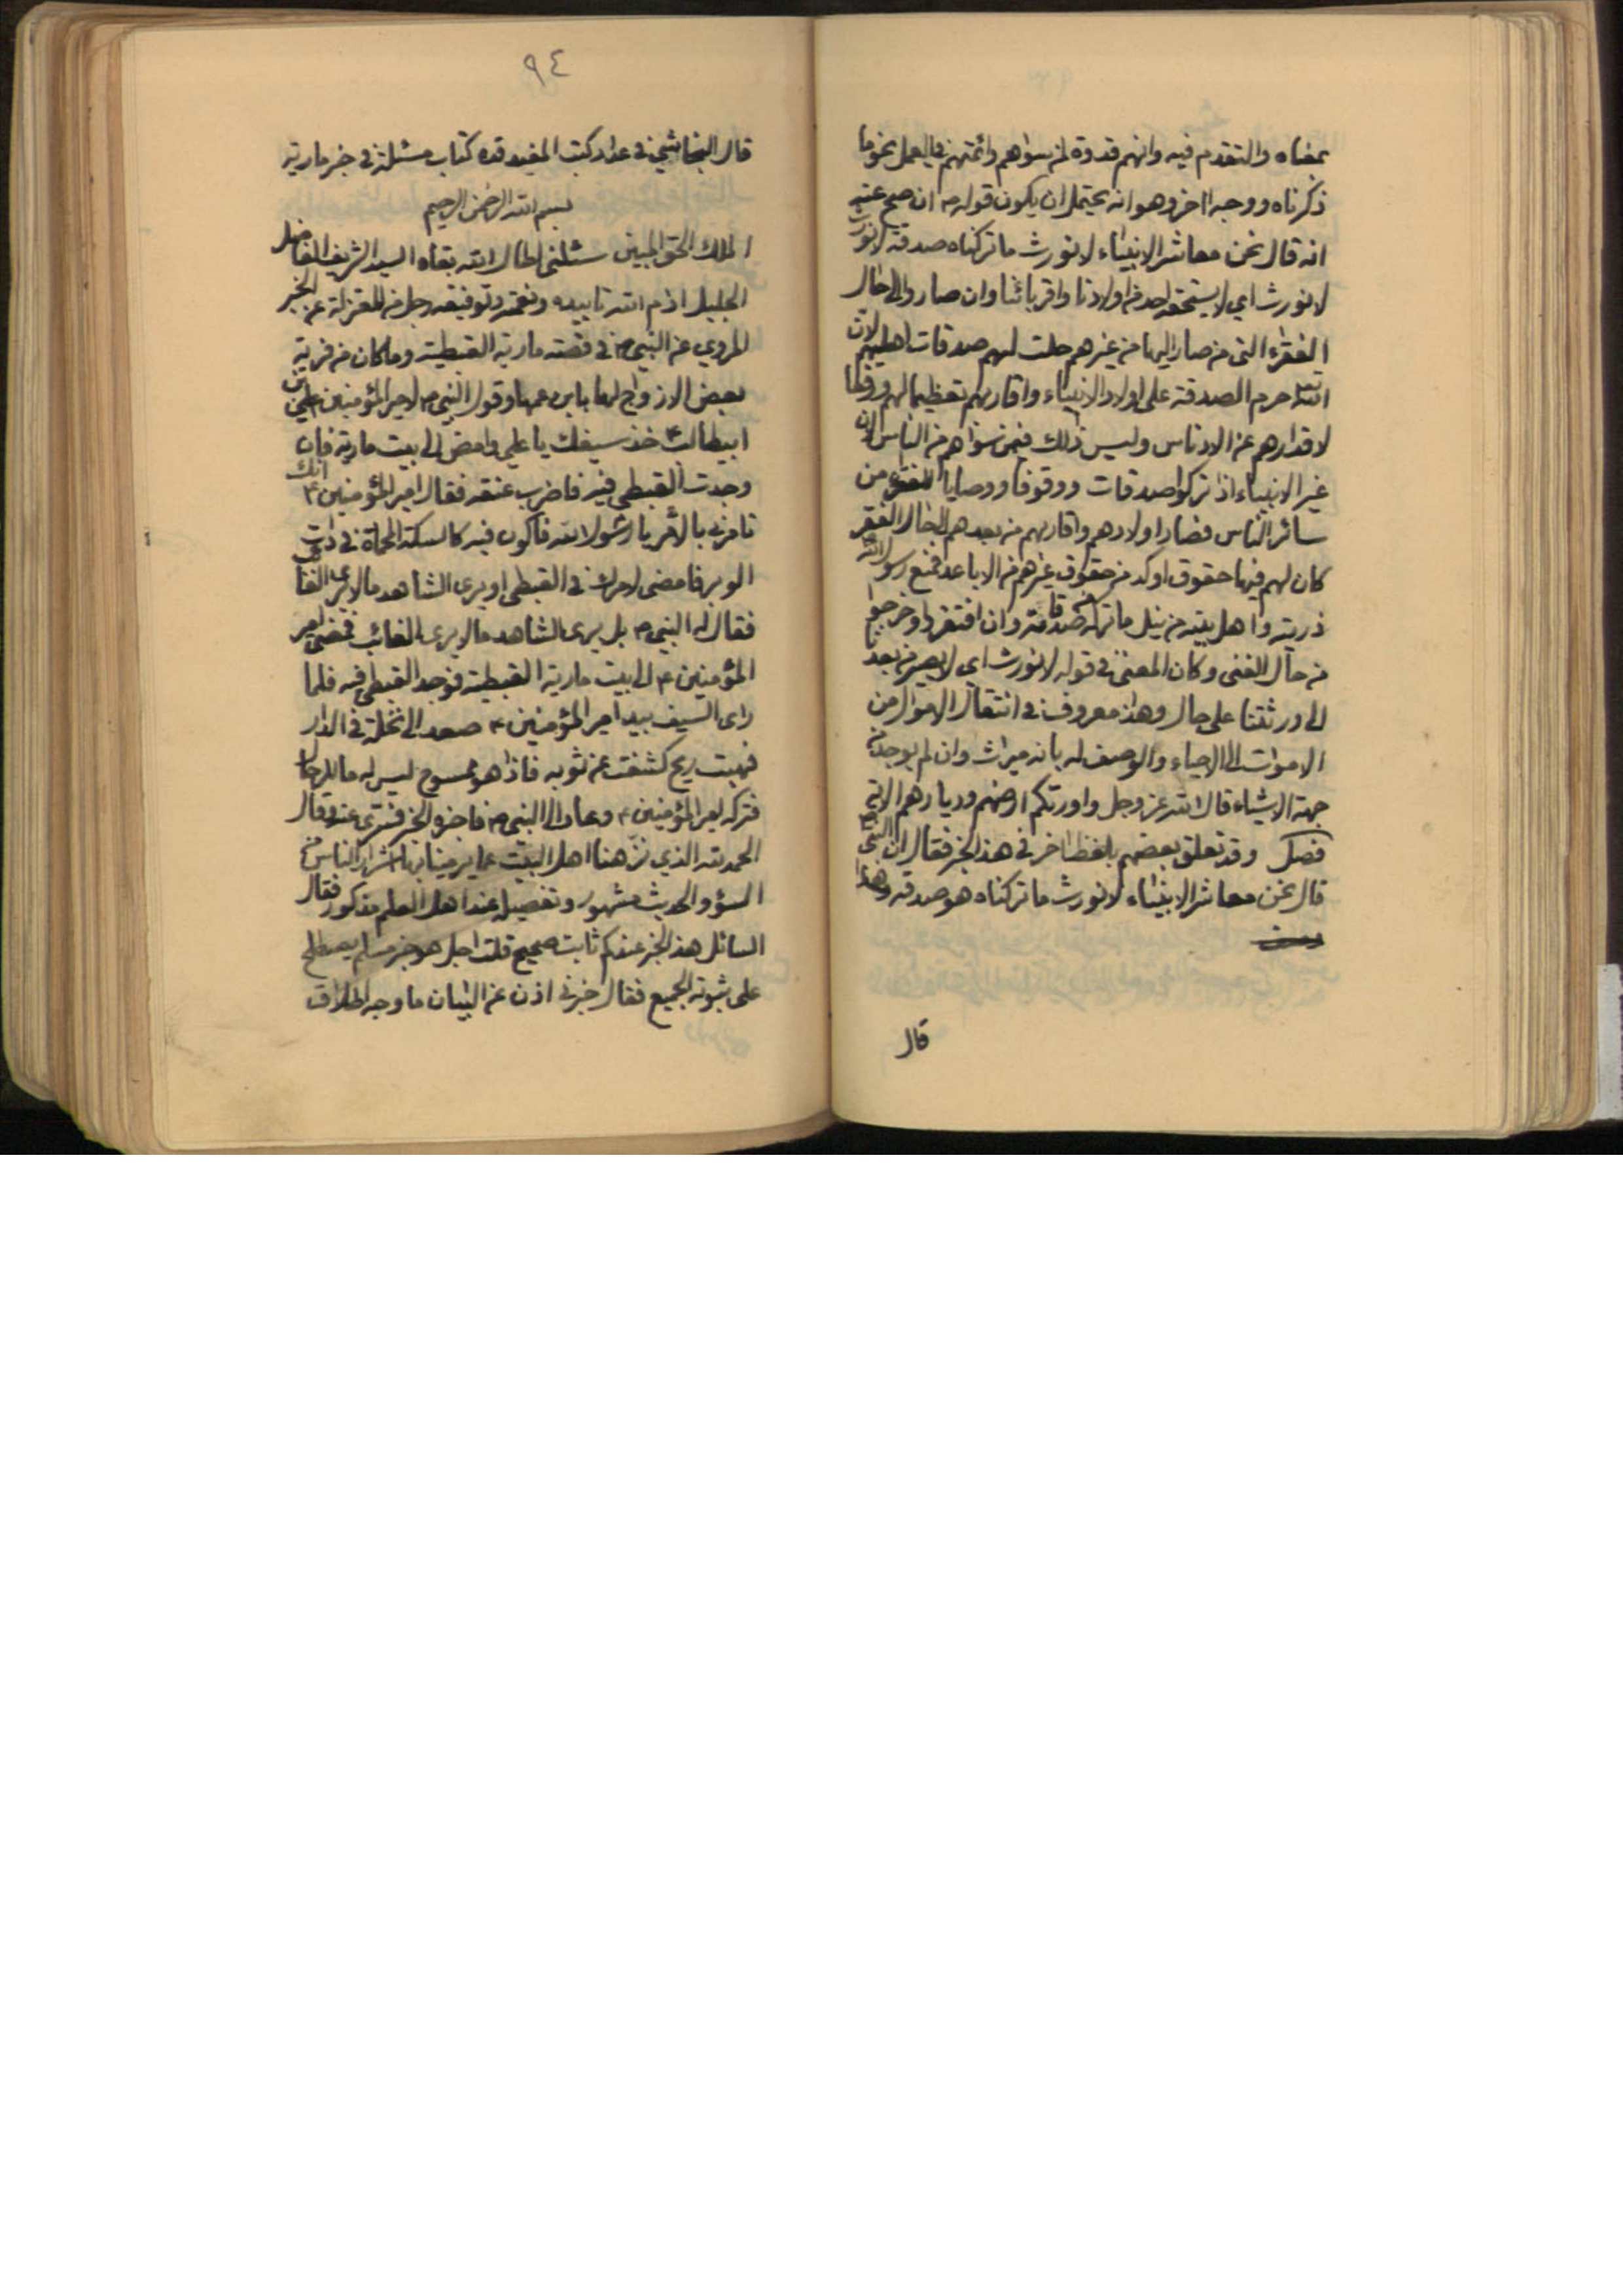 بمعناه والتقدم فيه وانهم قدوة لمن سواهم وائمتهم في العمل بنحو ما
ذكرناه ووجه اخر وهو انه يحتمل ان يكون قوله ص ان صح عنه
انه قال نحن معاشر الانبياء لا نورث ما تركناه صدقة لا نورث
لا نورث اي لا يستحقه احد من اولادنا واقربائنا وان صاروا الى حال
الفقراء التي من صار اليها من غيرهم حلت لهم صدقات اهليهم لان
الله حرم الصدقة على اولاد الانبياء واقاربهم تعظيما لهم ورفعا
لاقدارهم عن الادناس وليس ذلك فيمن سواهم من الناس لان
غير الانبياء اذا تركوا صدقات ووقوفا ووصايا للفقراء من
سائر الناس فصار اولادهم واقاربهم من بعدهم الى حال الفقر
كان لهم فيها حقوق اوكد من حقوق غيرهم من الاباعد فمنع رسول الله
ذريته واهل بيته من نيل ما تركه صدقة وان افتقروا وخرجوا
من حال الغنى وكان المعنى في قوله لا نورث اي لا يصير من بعدنا
الى ورثتنا على حال وهذا معروف في انتقال الاموال من
الاموات الى الاحياء والوصف له بانه ميراث وان لم يوجد من
جهة الاشياء قال الله عز وجل واورثكم ارضهم وديارهم الاية
فصل وقد تعلق بعضهم بلفظ اخر في هذا الخبر فقال ان النبي ص
قال نحن معاشر الانبياء لا نورث ما تركناه هو صدقة وهذا
قال
٩٤
قال النجاشي في عداد كتب المفيد قده كتاب مسئلة في خبر مارية
بسم الله الرحمن الرحيم
الملك الحق المبين سئلني اطال الله بقاه السيد الشريف الفاضل
الجليل ادام الله تاييده ونعمته وتوفيقه رجل من المعتزلة عن الخبر
المروي عن النبي ص في قصة مارية القبطية وما كان من فرية
بعض الازواج لها بابن عمها وقول النبي ص لامير المؤمنين علي بن
ابيطالب ع خذ سيفك يا علي وامض الى بيت مارية فان
وجدت القبطي فيه فاضرب عنقه فقال امير المؤمنين ع انك
تامرني بالامر يا رسول الله فاكون فيه كالسكة المحماة في ذات
الوبر فامضي لامرك في القبطي او يرى الشاهد ما لا يرى الغائب
فقال له النبي ص بل يرى الشاهد ما لا يرى الغائب فمضى امير
المؤمنين ع الى بيت مارية القبطية فوجد القبطي فيه فلما
راى السيف بيد امير المؤمنين ع صعد الى نخلة في الدار
فهبت ريح كشفت عن ثوبه فاذا هو ممسوح ليس له ما للرجال
فتركه امير المؤمنين ع وعاد الى النبي ص فاخبره الخبر فسري عنه وقال
الحمد لله الذي نزهنا اهل البيت عما يرمينا به اشرار الناس من
السوء والحديث مشهور وتفصيله عند اهل العلم مذكور فقال
السائل هذا الخبر عندكم ثابت صحيح قلت اجل هو خبر مسلم يصطلح
على ثبوته الجميع فقال خبرني اذن عن البيان ما وجه اطلاق